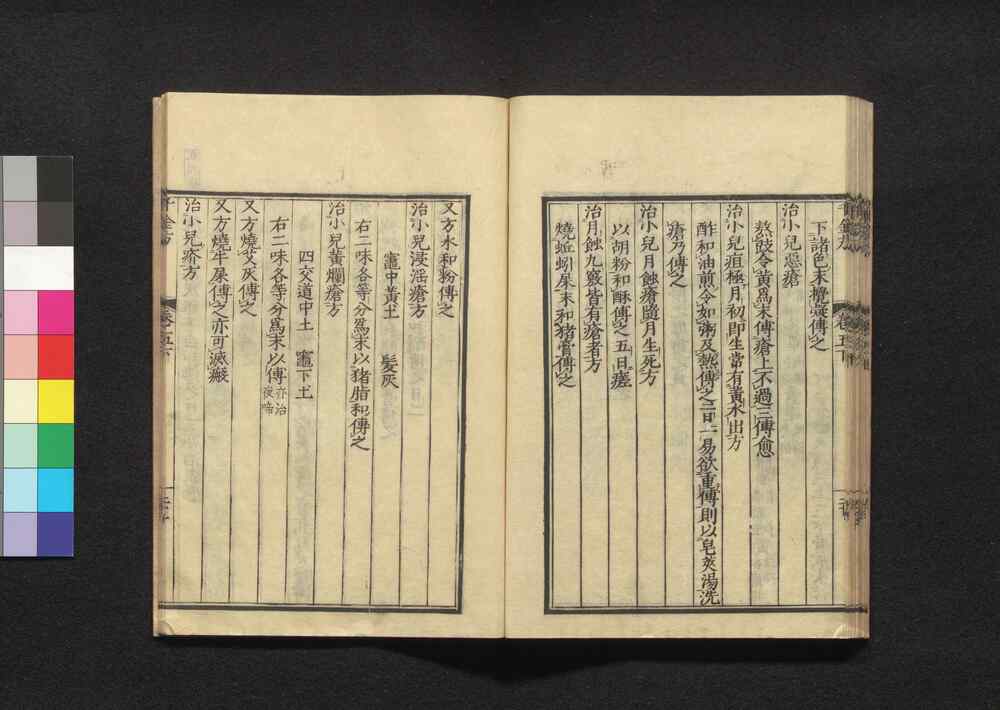 下諸色末攪煑傅之
治小兒惡瘡
熬豉令黄爲末傅瘡上不過三傅愈
治小兒疽極月初即生常有黄水出方
酢和油煎令如粥及熱傅之二日一易欲重傅則以皂莢湯洗
瘡乃傅之
治小兒月蝕瘡隨月生死方
以胡粉和酥傅之五日瘥
治月蝕九竅皆有瘡者方
燒蚯蚓屎末和猪膏傅之
又方水和粉傅之
治小兒浸淫瘡方
竈中黄土　髮灰
右二味各等分爲末以猪脂和傅之
治小兒黄爛瘡方
四交道中土　竈下土
右二味各等分爲末以傅亦治夜啼
又方燒艾灰傅之
又方燒牛屎傅之亦可滅瘢
治小兒瘡方